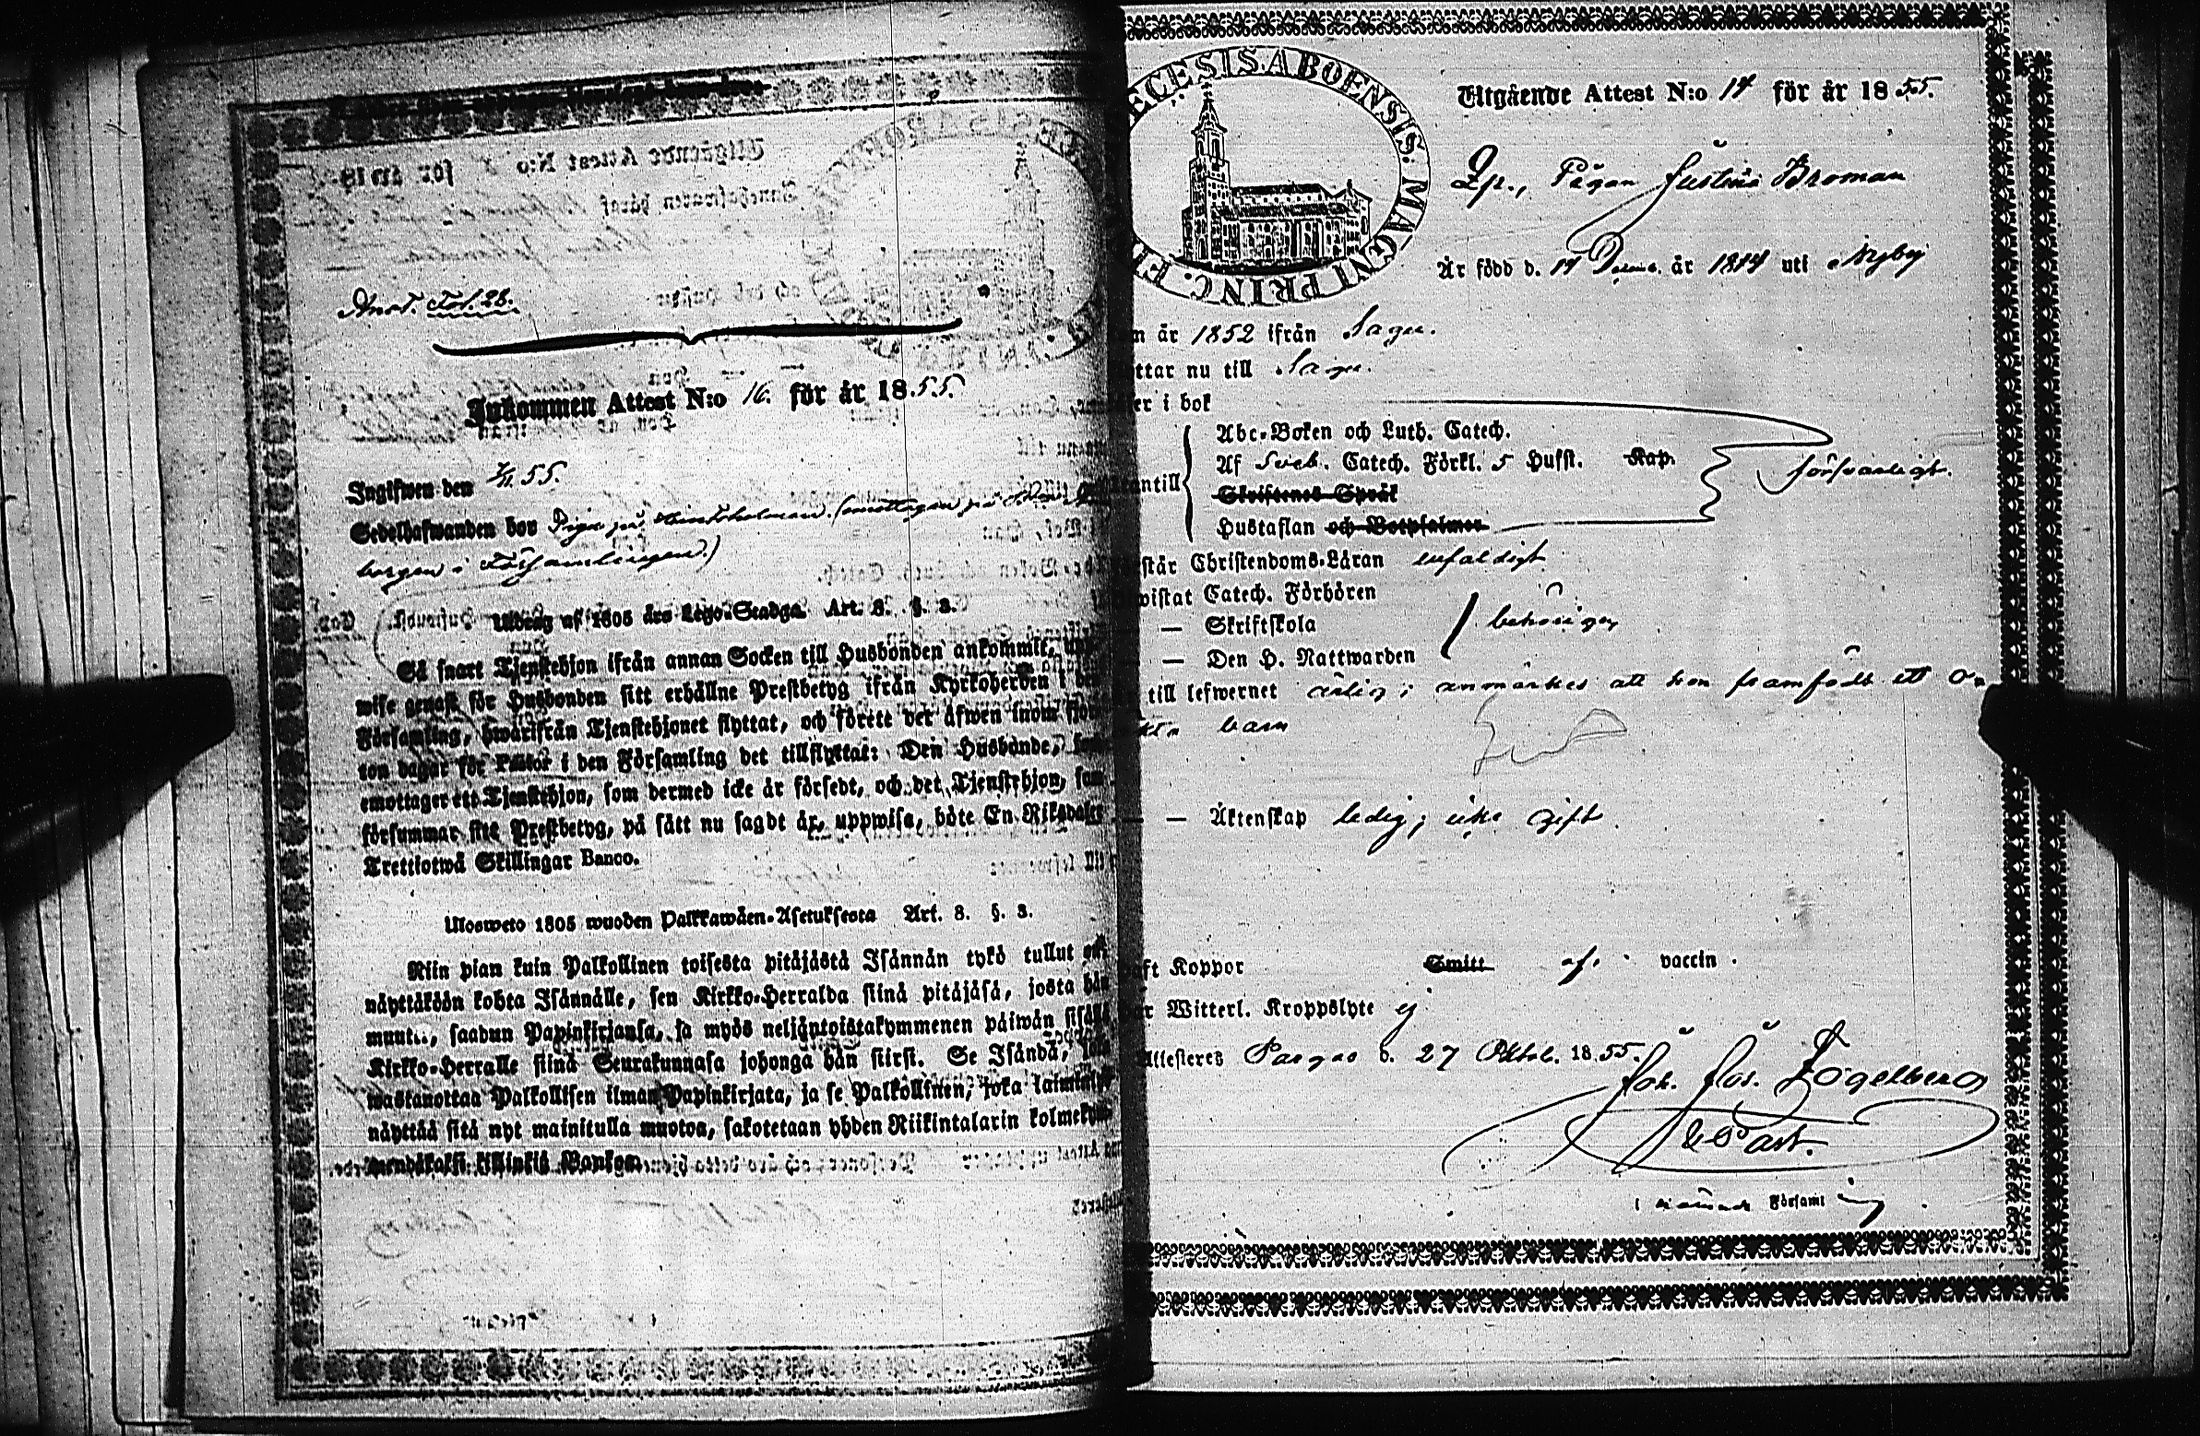 Anot. Fol. 28.
Inkommen Attest N:o 16. för år 1855.
Ingifwen den 7/11 55.
Sedelhafwanden bor Piga på
borgen i Församlingen.)
Utdrag af 1805 års Lego-Stadga Art. 8. §. 3.
Så snart Tjenstehjon ifrån annan Socken till Husbonden ankommit, upp-
wise genast för Husbonden sitt erhållne Prestbetyg ifrån Kyrkoherden i den
Församling, hwarifrån Tjenstehjonet flyttat, och förete det äfwen inom fjor-
ton dagar för Pastor i den Församling det tillflyttat: Den Husbonde, som
emottager ett Tjenstehjon, som dermed icke är försedt, och det Tjenstehjon, som
försummar sitt Prestbetyg, på sätt nu sagdt är, uppwisa, böte En Riksdaler
Trettiotwå Skillingar Banco.
Ulosweto 1805 wuoden Palkkawäen-Asetuksesta Art. 8. §. 3.
Niin pian kuin Palkollinen toisesta pitäjästä Isännän tykö tullut on,
näyttäköön kohta Isännälle, sen Kirkko-Herralda siinä pitäjäsä, josta hän
muutti, saadun Papinkirjansa, ja myös neljäntoistakymmenen päiwän sisällä
Kirkko-Herralle siinä Seurakunnasa johonga hän siirsi. Se Isändä, joka
wastanottaa Palkollisen ilman Papinkirjata, ja se Palkollinen, joka laiminlyö
näyttää sitä nyt mainitulla muotoa, sakotetaan yhden Riikintalarin kolmekym-
mendäkaksi killinkiä Bankoa.
ECESIS ABOENSIS. MAGNI PRINC. FI
Utgående Attest N:o 14 för år 1855.
Pigan Justina Broman
Är född d. 14 år 1814 uti Nyby
n år 1852 ifrån Sagu.
ttar nu till Sagu.
er i bok
Abc-Boken och Luth. Catech.
Af Sveb. Catech. Förkl. 5 Hufst. Kap.
antill
försvarligt.
Skriftenes Språk
Hustaflan och Botpsalmer
står Christendoms-Läran enfaldigt
wistat Catech. Förhören
— Skriftskola
behörigen
— Den H. Nattwarden
till lefwernet ärlig; anmärkes att hon framfödt ett o-
äkta barn
— — Äktenskap ledig; icke gift
aft Koppor Smitt af. vaccin.
r Witterl. Kroppslyte ej
Attesteres Pargas d. 27 Oktob. 1855.
Joh. Jos. Fogelberg
Past.
i nämnde Församling